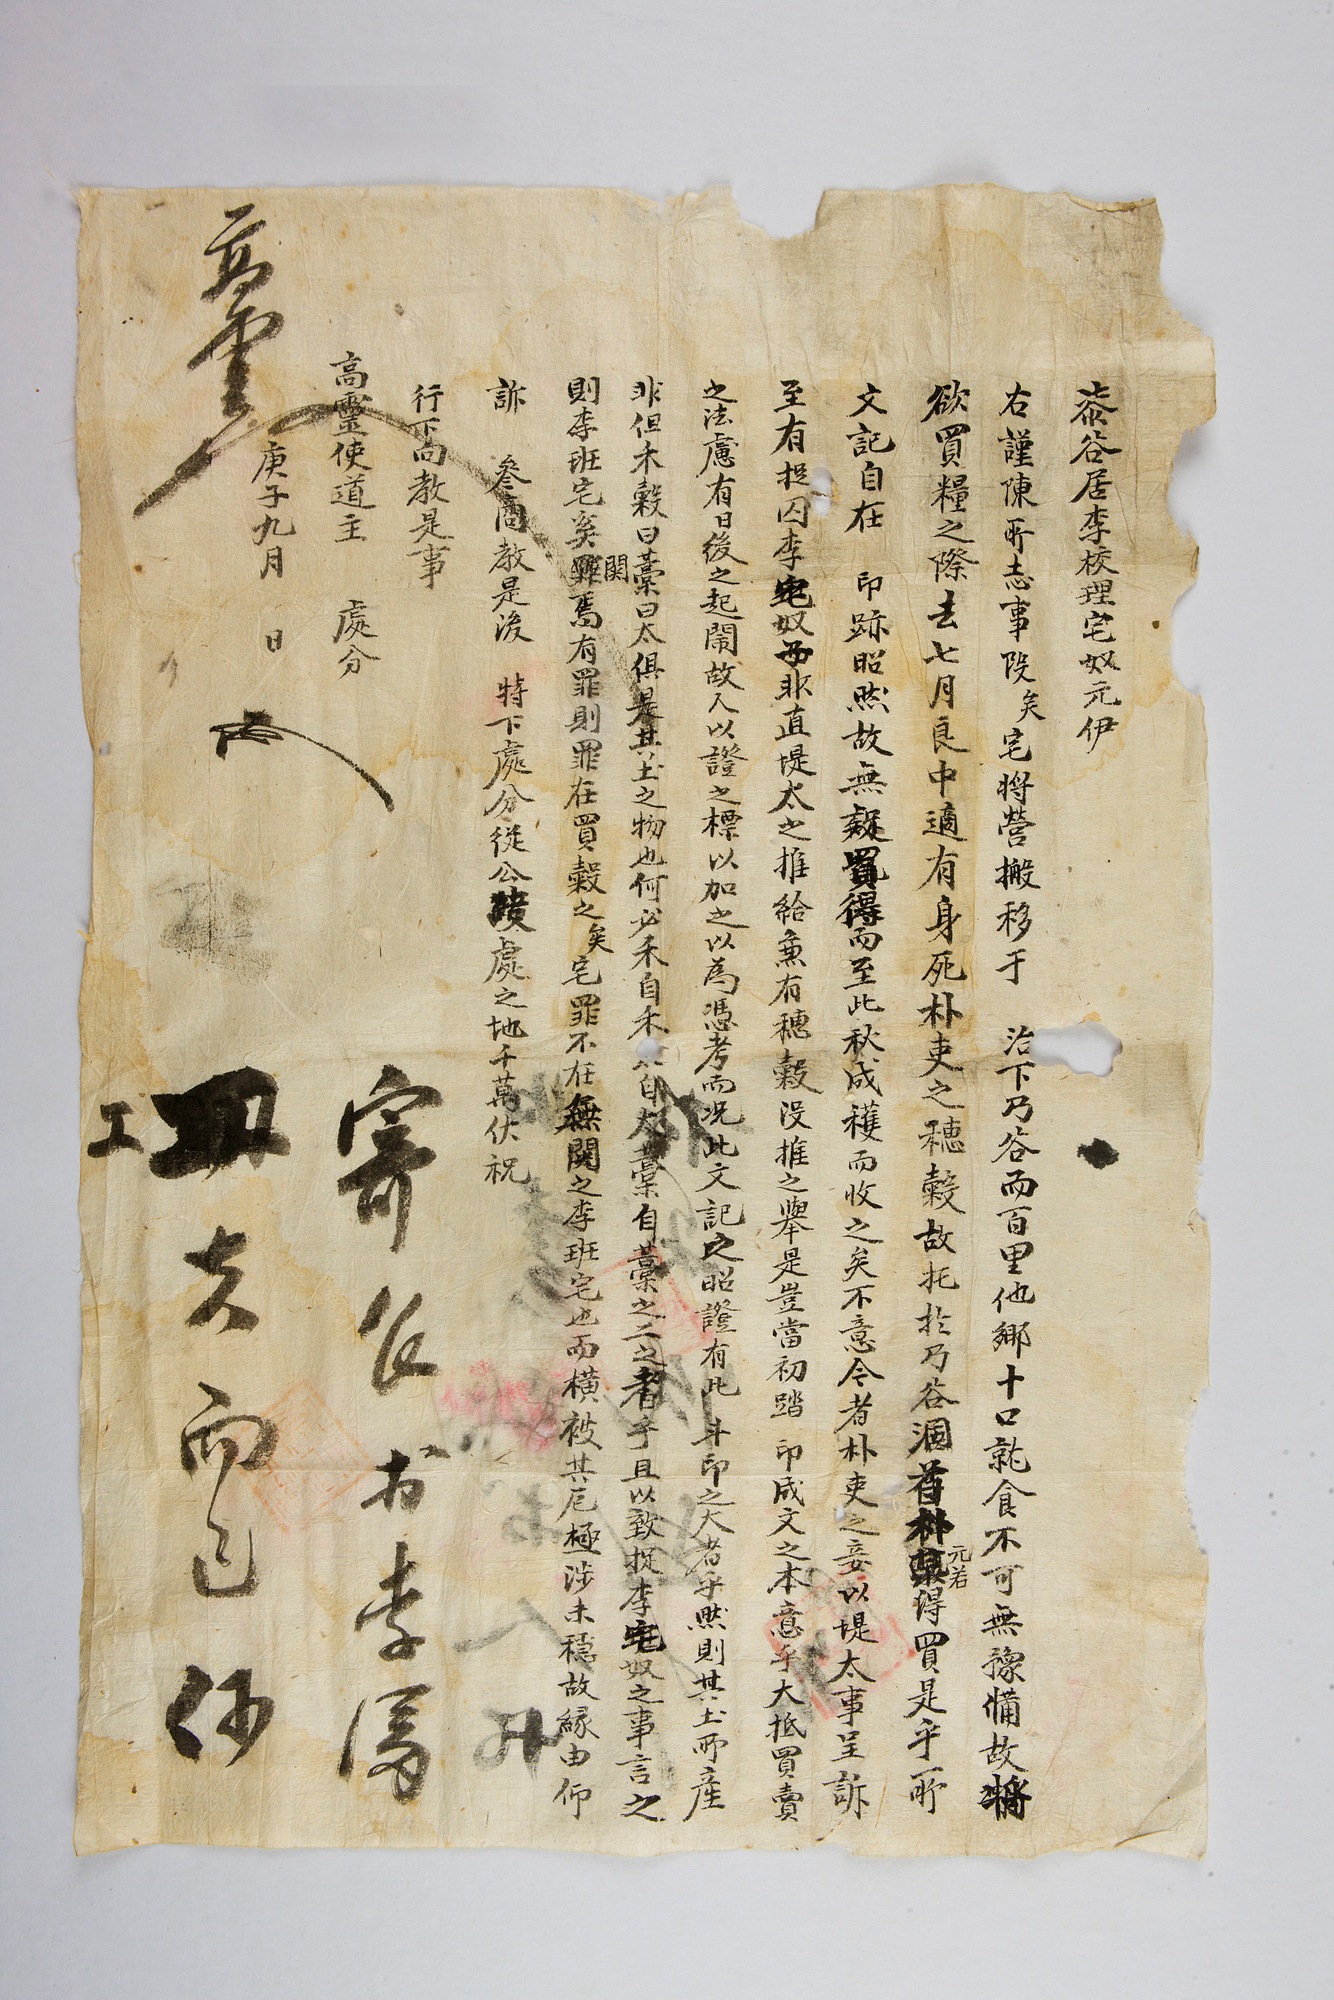 柒谷居李校理宅奴元伊
右謹陳所志事段矣宅將營搬移于 治下乃谷而百里他鄕十口就食不可無豫備故將
欲買糧之際去七月良中適有身死朴吏之穗穀故托於乃谷洞首朴元若得買是乎所
文記自在 印跡昭然故無疑買得而至此秋成穫而收之矣不意今者朴吏之妾以堤太事呈訴
至有捉囚李宅奴子非直堤太之推給兼有穗穀沒推之擧是豈當初踏 印成文之本意乎大抵買賣
之法慮有日後之起鬧故人以證之標以加之以爲憑考而况此文記之昭證有此 斗印之大者乎然則其土所産
非但禾穀曰藁曰太俱是其土之物也何必禾自禾太自太藁自藁之二之者乎且以致捉李宅奴之事言之
則李班宅奚關焉有罪則罪在買穀之矣宅罪不在無關之李班宅也而橫被其厄極涉未穩故緣由仰
訴 參商敎是後 特下處分從公決處之地千萬伏祝
行下向敎是事
高靈使道主 處分
庚子九月 日
高靈